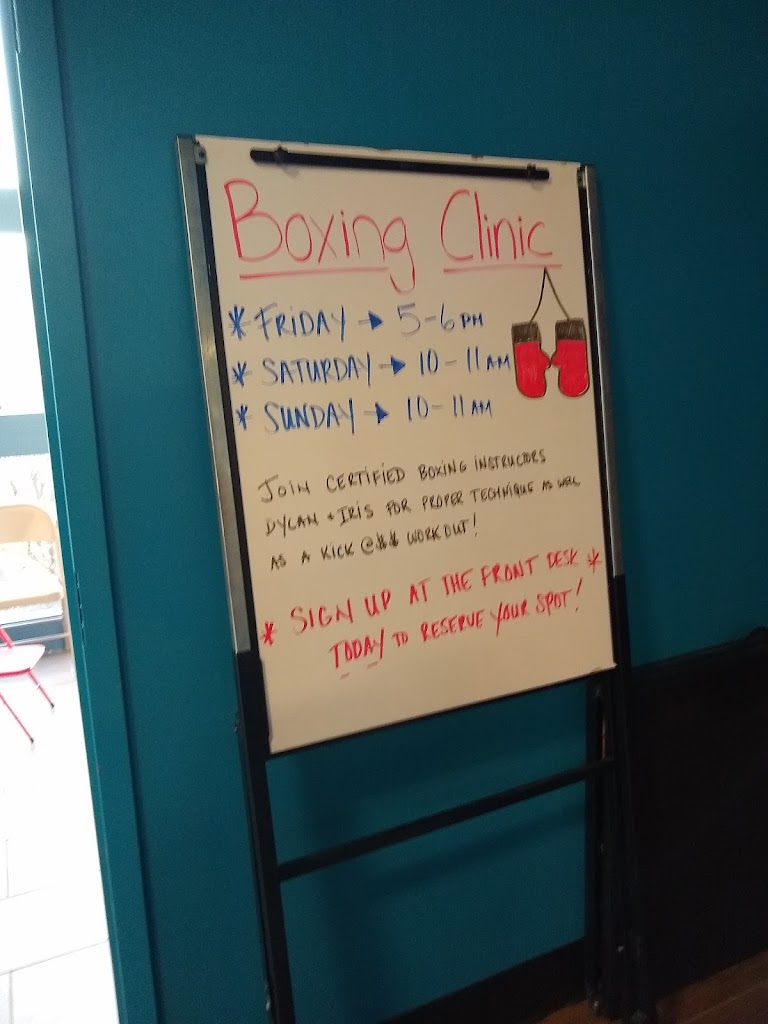 Boxing Clinic
* FRIDAY → 5-6 PM
* SATURDAY → 10-11 AM
* SUNDAY → 10-11 AM
JOIN CERTIFIED BOXING INSTRUCTORS
DYLAN + IRIS FOR PROPER TECHNIQUE AS WELL
AS A KICK @$$ WORKOUT!
* SIGN UP AT THE FRONT DESK *
TODAY TO RESERVE YOUR SPOT!